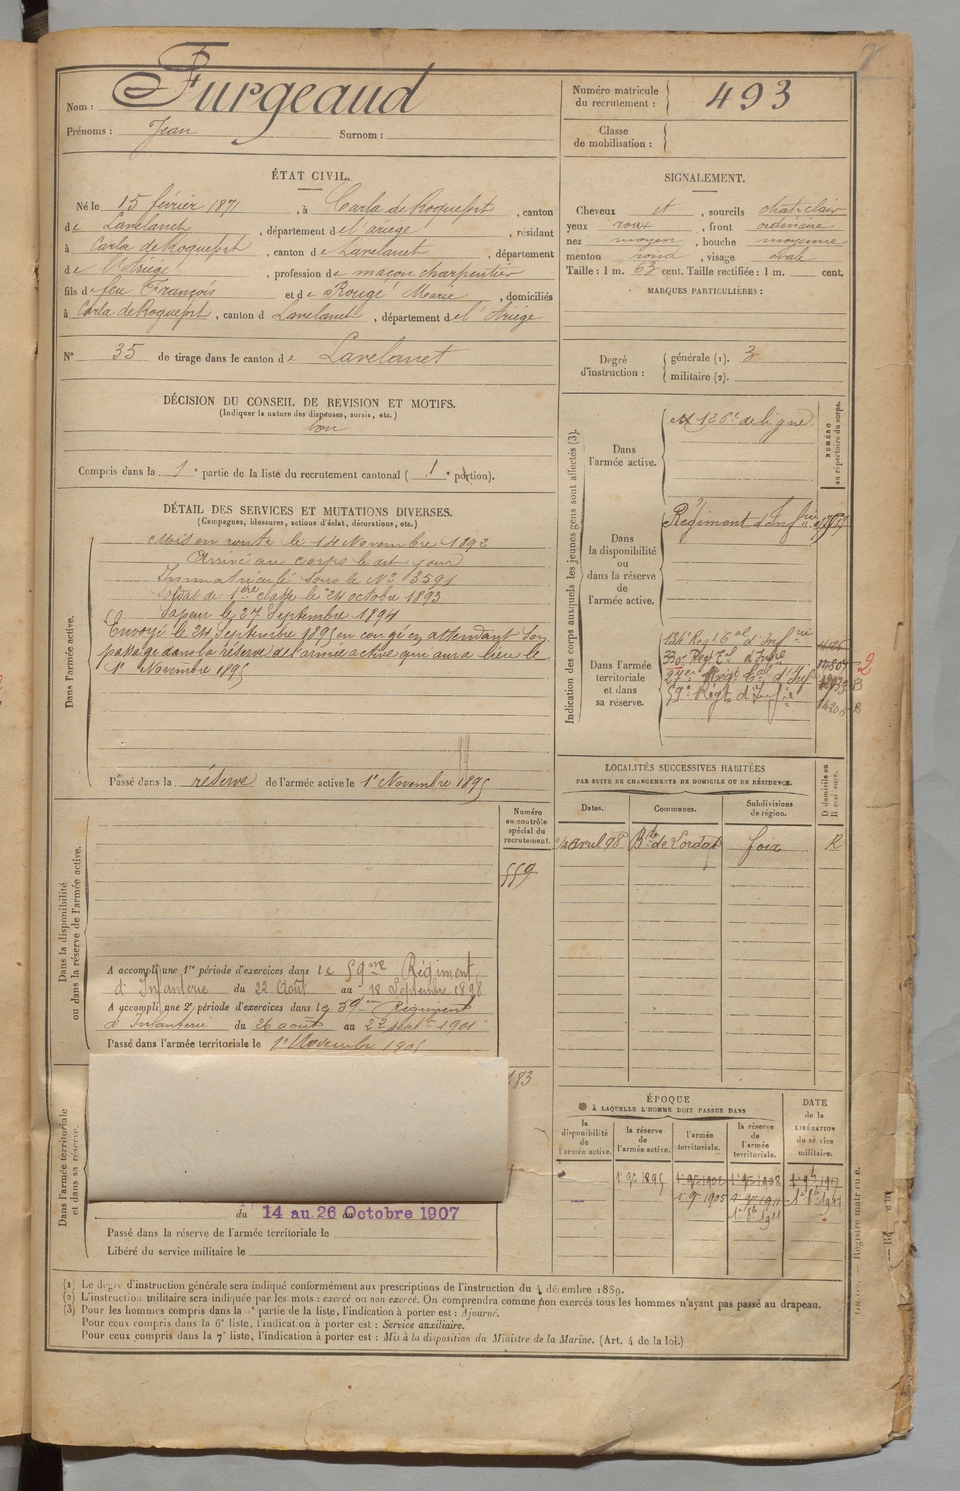 Nom : Furgeaud
Prénoms : Jean Surnom :
Numéro matricule du recrutement : 493
Classe de mobilisation :
ÉTAT CIVIL.
Né le 15 février 1871, à Carla de Roquefort, canton
de Lavelanet, département de l'ariège, résidant
à Carla de Roquefort, canton de Lavelanet, département
de l'Ariège, profession de maçon charpentier
fils de feu François et de Rougé Marie, domiciliés
à Carla de Roquefort, canton d Lavelanet, département de l'Ariège
N° 35 de tirage dans le canton de Lavelanet
SIGNALEMENT.
Cheveux et, sourcils chat-clair
yeux roux, front ordinaire
nez moyen, bouche moyenne
menton rond, visage ovale
Taille : 1 m. 63 cent. Taille rectifiée : 1 m. cent.
MARQUES PARTICULIÈRES :
Degré d'instruction : générale (1). 3
militaire (2).
DÉCISION DU CONSEIL DE REVISION ET MOTIFS.
(Indiquer la nature des dispenses, sursis, etc.)
bon
Compris dans la 1e partie de la liste du recrutement cantonal (1e portion).
DÉTAIL DES SERVICES ET MUTATIONS DIVERSES.
(Campagnes, blessures, actions d'éclat, décorations, etc.)
Dans l'armée active.
Mis en route le 14 Novembre 1892
Arrivé au corps le dit jour
Immatriculé sous le N° 3591
Soldat de 1ère classe le 24 octobre 1893
Sapeur le 27 Septembre 1894
Envoyé le 24 Septembre 1895 en congé en attendant son
passage dans la réserve de l'armée active qui aura lieu le
1r Novembre 1895
Passé dans la réserve de l'armée active le 1r Novembre 1895
Indication des corps auxquels les jeunes gens sont affectés (3).
NUMÉRO au répertoire du corps.
Dans l'armée active.
126e de ligne
Dans la disponibilité ou dans la réserve de l'armée active.
Régiment d'Infrie
Dans l'armée territoriale et dans sa réserve.
134e Regt d'Infrie
59e Regt d'Infrie
2
LOCALITÉS SUCCESSIVES HABITÉES
PAR SUITE DE CHANGEMENTS DE DOMICILE OU DE RÉSIDENCE.
D domicile ou R résidence.
Dates. Communes. Subdivisions de région.
avril 98 Bde de Lordat foix R
Dans la disponibilité ou dans la réserve de l'armée active.
Numéro au contrôle spécial du recrutement.
559
A accompli une 1re période d'exercices dans le 59me Régiment
d'Infanterie du 22 Août au 18 Septembre 1898
A accompli une 2e période d'exercices dans le 59em Régiment
d'Infanterie du 26 août au 22 septbre 1901
Passé dans l'armée territoriale le 1r Novembre 1905
Dans l'armée territoriale et dans sa réserve.
183
du 14 au 26 Octobre 1907
Passé dans la réserve de l'armée territoriale le
Libéré du service militaire le
ÉPOQUE
à LAQUELLE L'HOMME DOIT PASSER DANS
DATE de la LIBÉRATION du service militaire.
la disponibilité de l'armée active.
la réserve de l'armée active.
l'armée territoriale.
la réserve de l'armée territoriale.
1r 9e 1895
1r 9e 1905
1r 8b 1911
(1) Le degré d'instruction générale sera indiqué conformément aux prescriptions de l'instruction du 4 décembre 1889.
(2) L'instruction militaire sera indiquée par les mots : exercé ou non exercé. On comprendra comme non exercés tous les hommes n'ayant pas passé au drapeau.
(3) Pour les hommes compris dans la partie de la liste, l'indication à porter est : Ajourné.
Pour ceux compris dans la 6e liste, l'indication à porter est : Service auxiliaire.
Pour ceux compris dans la 7e liste, l'indication à porter est : Mis à la disposition du Ministre de la Marine. (Art. 4 de la loi.)